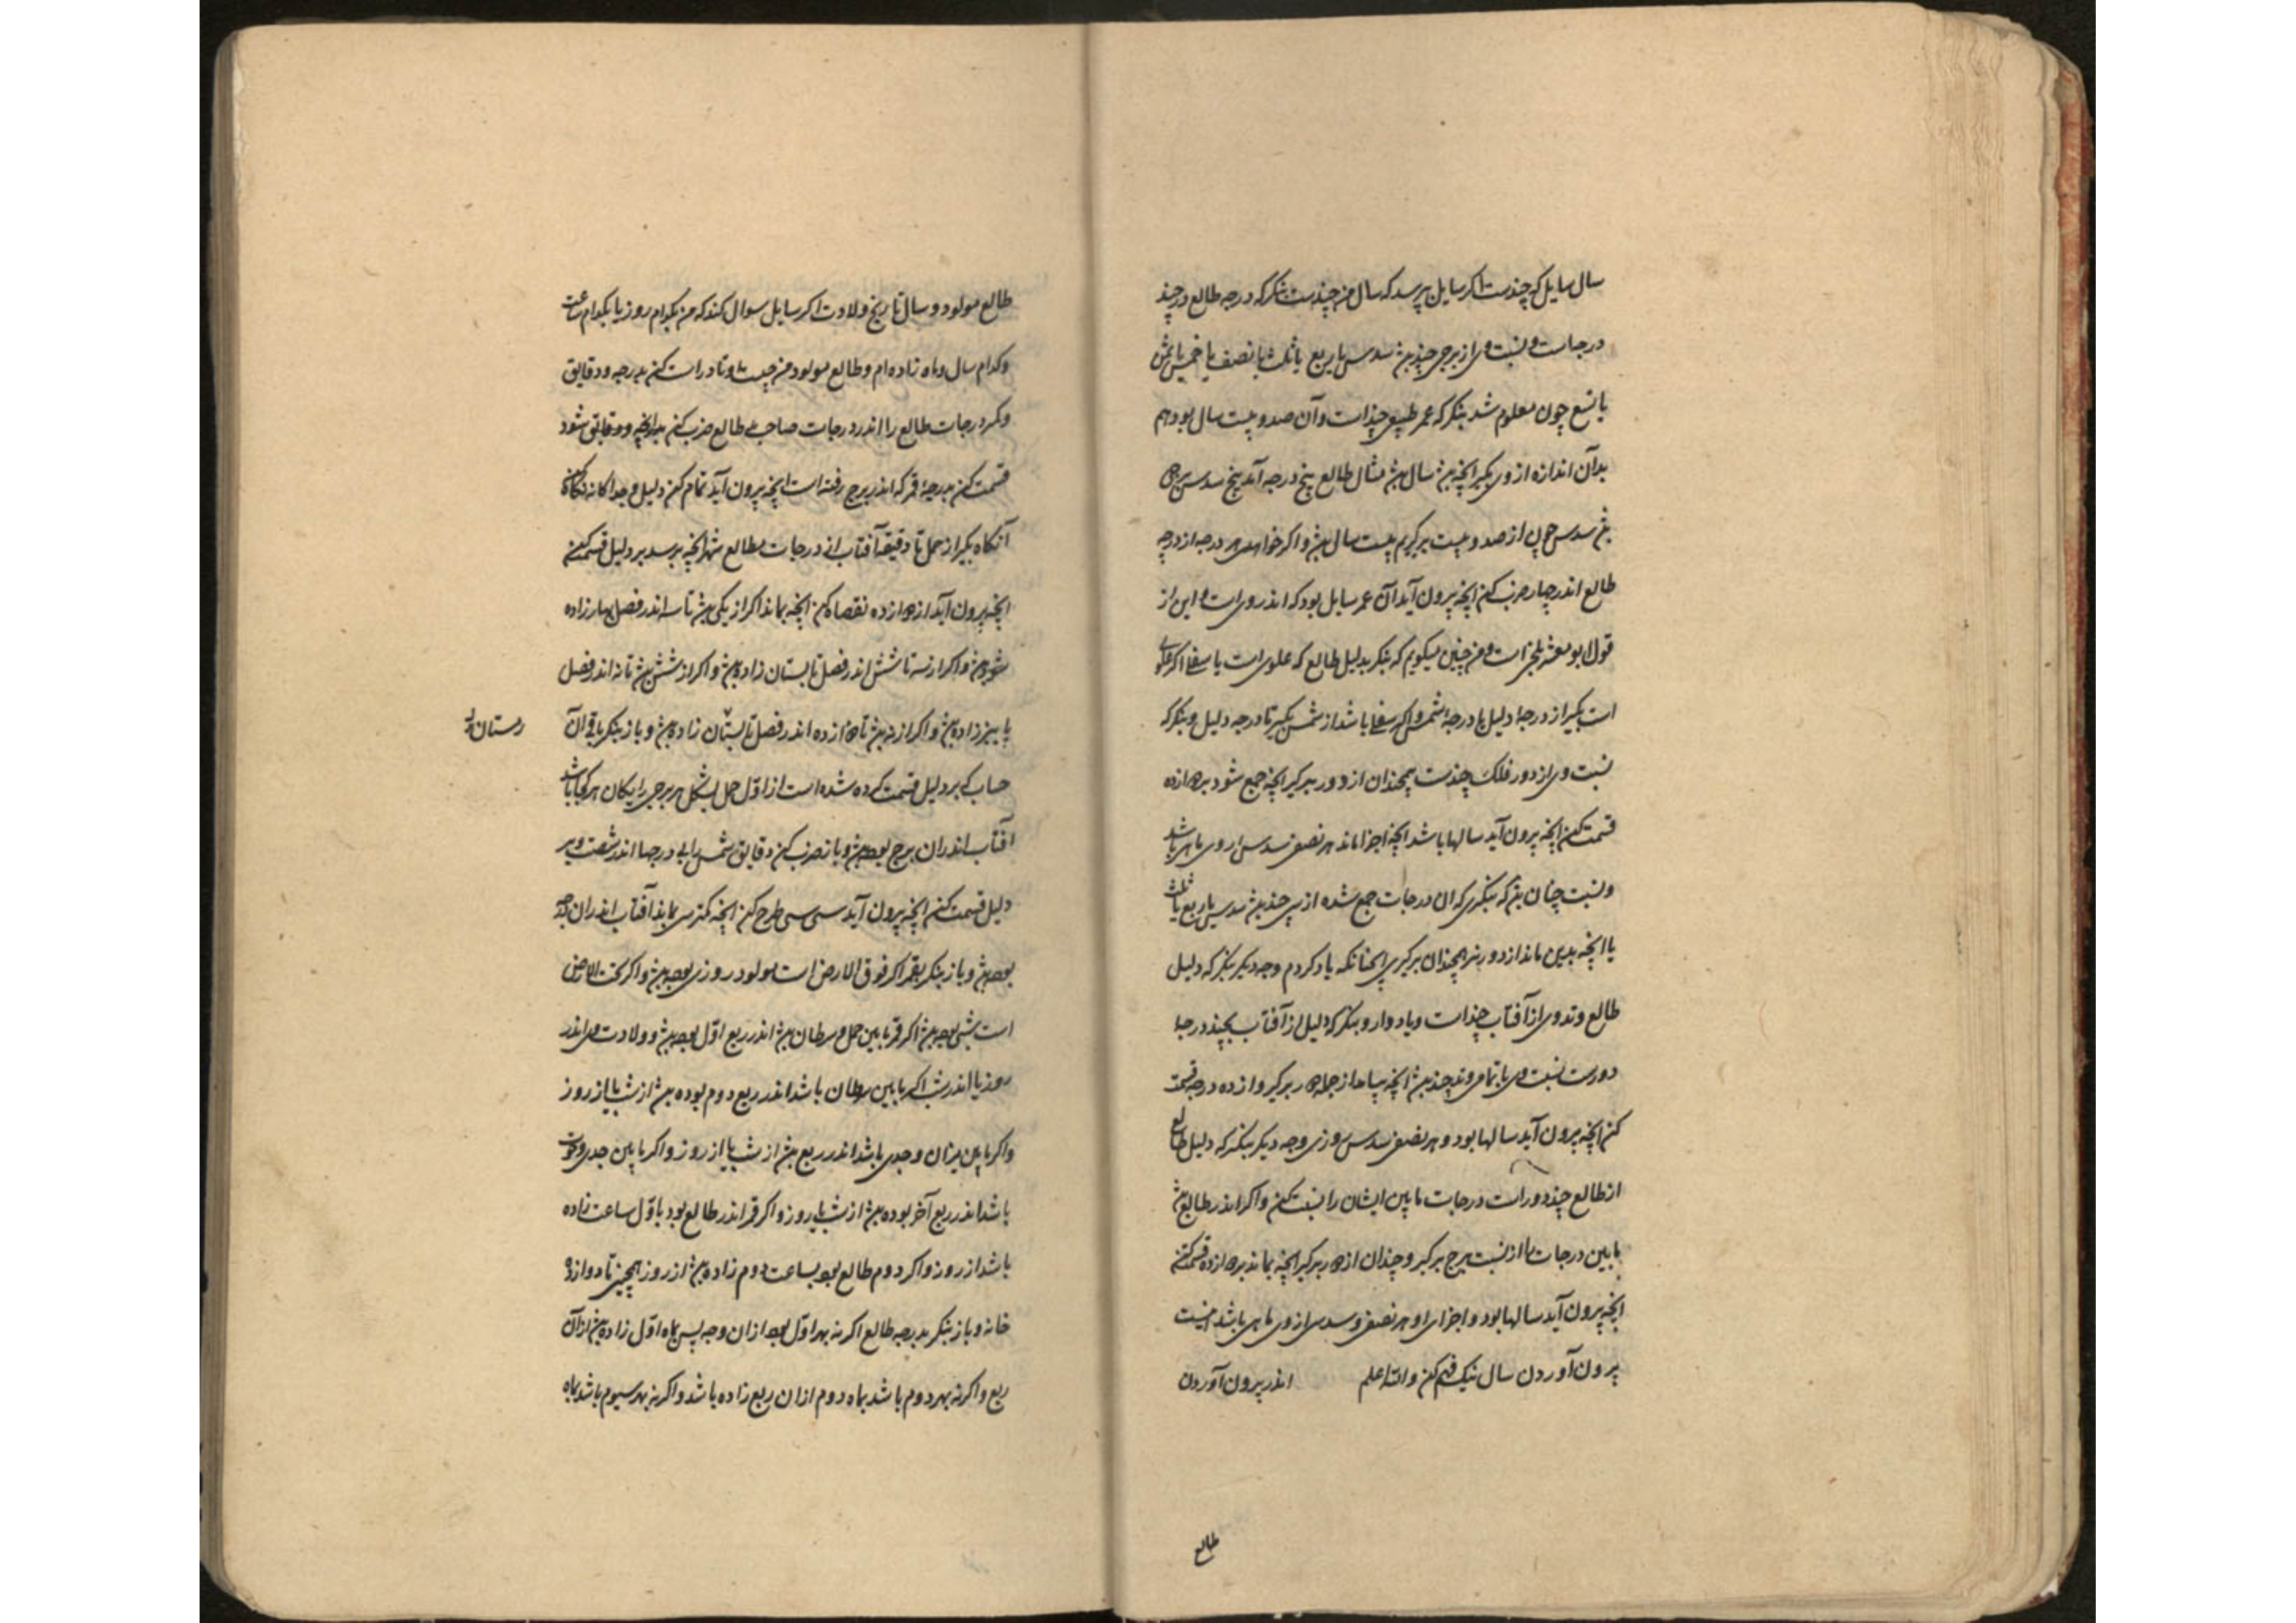 سال سایل که چندست اکر سایل بپرسد که سال من چندست بنکر که درجه طالع در چند
درجاست و نسبت وی از برجی چند بش سدس یا ربع یا ثلث یا نصف یا خمس یا ثمن
یا تسع چون معلوم شد بنکر که عمر طبیعی چنداست وآن صد و بیست سال بود هم
بدآن اندازه از وی بکیر انچه بش سال بش مثال طالع پنج درجه آمد پنج سدس برجی
بش سدس چون از صد و بیست برکیریم بیست سال بش و اکر خواهی هر درجه از درجه
طالع اندر چهار ضرب کن انچه پرون آید آن عمر سایل بود که اندر وی است و این از
قول ابو معشر بلخی است و من چنین میکویم که بنکر بدلیل طالع که علوی است یا سفلی اکر علوی
است بکیر از درجهٔ دلیل تا درجهٔ شمس و اکر سفلی باشد از شمس بکیر تا درجه دلیل و بنکر که
نسبت وی از دور فلک چندست همچندان از دور برکیر انچه جمع شود بر دوازده
قسمت کن انچه پرون آید سالها باشد انچه اجزا ماند هر نصف سدس از وی ماهی باشد
و نسبت چنان بش که بنکری که ان درجات جمع شده از سی چند بش سدس یا ربع یا ثلث
یا انچه بدین ماند از دور نیز همچندان برکیری همچنانکه یاد کردم وجه دیکر بنکر که دلیل
طالع وتد وی از آفتاب چنداست و یا دوار و بنکر که دلیل از آفتاب بچند درجهٔ
دورست نسبت وی با تمامی وتد چند بش انچه بیاید از جمله دور برکیر و از ده درجه قسمت
کن انچه پرون آید سالها بود و هر نصف سدس روزی وجه دیکر بنکر که دلیل طالع
از طالع چند دور است درجات ما بین ایشان را نسبت کن و اکر اندر طالع بش
ما بین درجات را از نسبت برج برکیر و چندان از دور برکیر انچه بماند بر دوازده قسمت کن
انچه پرون آید سالها بود و اجزای او هر نصف و سدس از وی ماهی باشد اینست
پرون آوردن سال نیک فهم کن والله اعلم اندر پرون آوردن
طالع
طالع مولود و سال تاریخ ولادت اکر سایل سوال کند که من بکدام روز یا بکدام ساعت
وکدام سال و ماه زاده ام و طالع مولود من چیست وتد راست کن بدرجه و دقایق
و درجات طالع را اندر درجات صاحب طالع ضرب کن بدانچه و دقایق شود
قسمت کن بدرجهٔ قمر که اندر برج رفته است انچه پرون آید تمام کن دلیل و جداکانه نکاه
آنکاه بکیر از حمل تا دقیقهٔ آفتاب از درجات مطالع شهر انچه برسد بر دلیل قسمت کن
انچه پرون آید از دوازده نقصان کن انچه بماند اکر از یکی بش تا سه اندر فصل بهار زاده
بش و اکر از سه تا شش اندر فصل تابستان زاده بش و اکر از شش بش تا نه اندر فصل
پاییز زاده بش و اکر از نه بش تا دوازده اندر فصل تابستان زاده بش و باز بنکر باقی آن
زمستان
حساب که بر دلیل قسمت کرده شده است از اول حمل بشکل هر برجی را یکان هر کجا باشد
آفتاب اندران برج بوده بش و باز ضرب کن دقایق شمس را بی درجها اندر شصت و بر
دلیل قسمت کن انچه پرون آید سی سی طرح کن انچه کمتر سی بماند آفتاب اندران درجه
بوده بش و باز بنکر بقمر اکر فوق الارض است مولود روزی بوده بش و اکر تحت الارض
است شبی بوده بش اکر قمر مابین حمل و سرطان بش اندر ربع اول بوده بش و ولادت وی اندر
روز یا اندر شب اکر مابین سرطان باشد اندر ربع دوم بوده بش از شب یا از روز
واکر مابین میزان و جدی باشد اندر ربع بش از شب یا از روز و اکر مابین جدی و حوت
باشد اندر ربع آخر بوده بش از شب یا روز و اکر قمر اندر طالع بود باول ساعت زاده
باشد از روز و اکر دوم طالع بود بساعت دوم زاده بش از روز همچنین تا دوازده
خانه و باز بنکر بدرجه طالع اکر نه بهر اول بود ازان وجه پس بماه اول زاده بش ازان
ربع و اکر نه بهر دوم باشد بماه دوم ازان ربع زاده باشد و اکر نه بهر سیوم باشد بماه